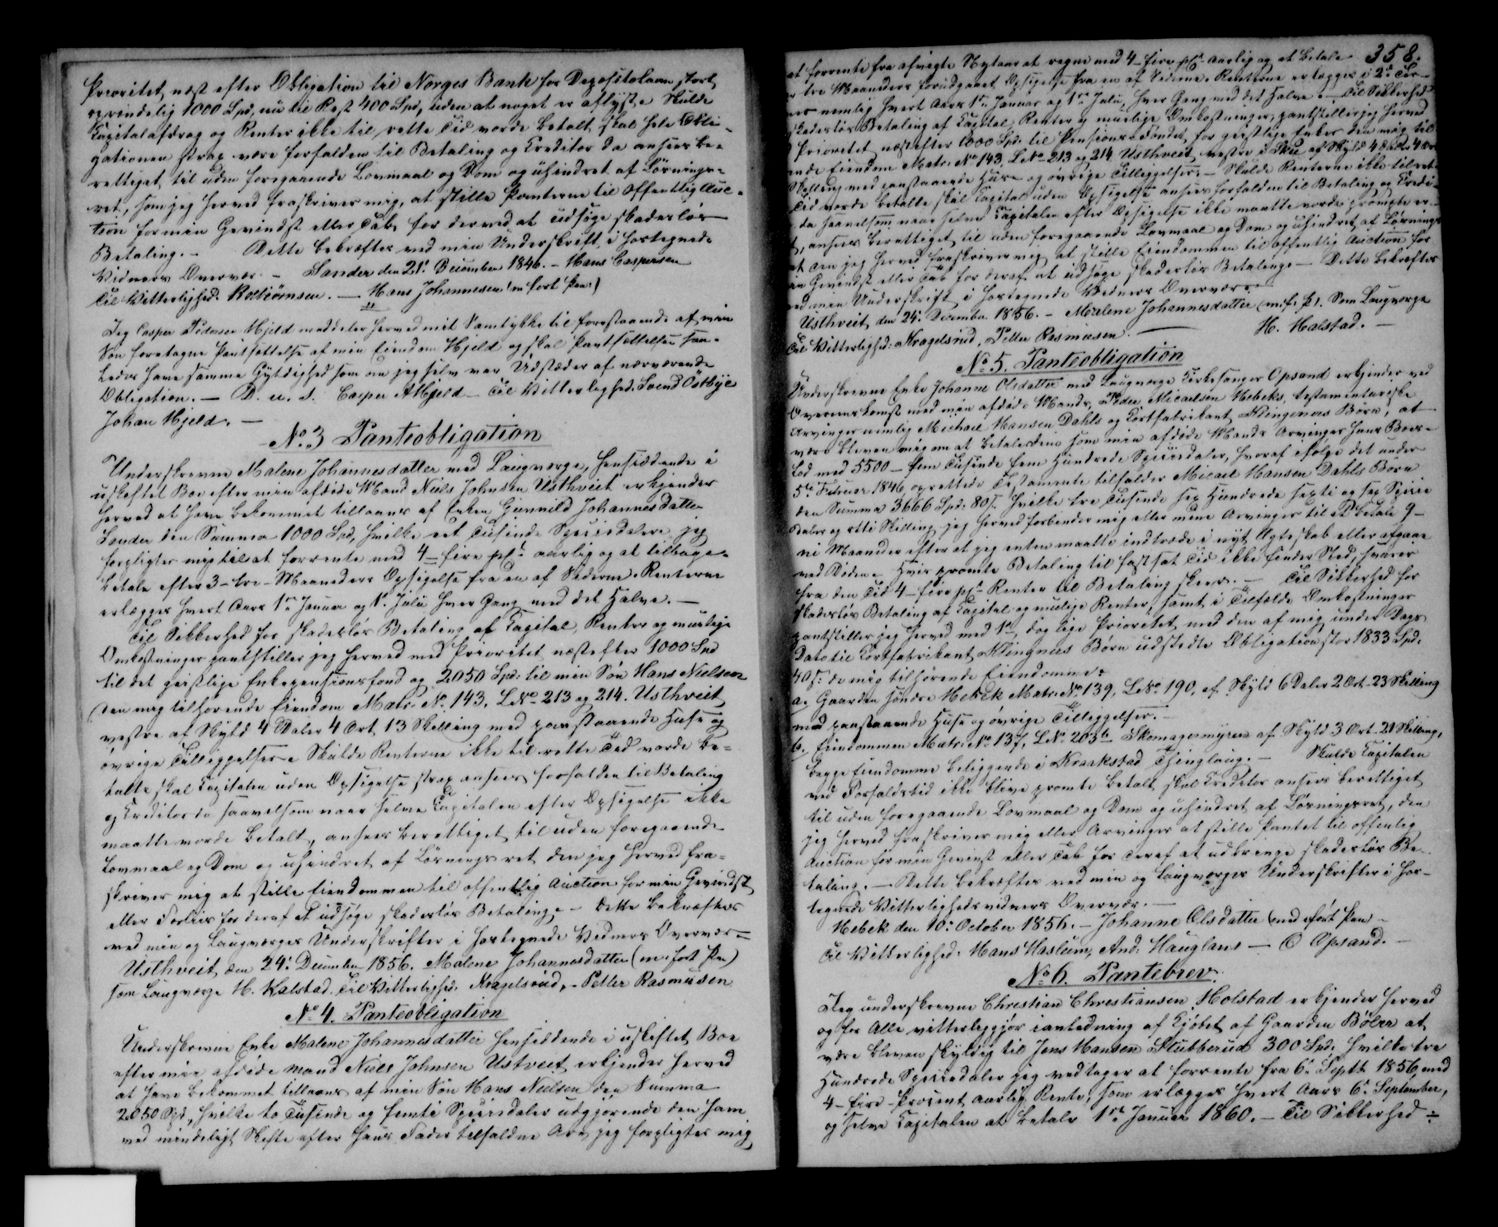 Prioritet, næst efter Obligation til Norges Bank for Depositolaan stort
oprindelig 1000 Spd, nu til Rest 400 Spd, uden at noget er aflyst. Skulde
Kapitalafdrag og Renter ikke til rette Tid vorde betalt, skal hele Obli-
gationen strax være forfalden til Betaling og Creditor da ansees be-
rettiget til uden foregaaende Lovmaal og Dom og uhindret af Løsnings-
ret, som jeg herved fraskriver mig, at stille Panterne til offentlig Auc-
tion for min Gevindst eller Tab, for derved at udsøge skadesløs
Betaling. — Dette bekræftes med min Underskrift i hostegnede
Vidners Overvær. — Sander den 21. December 1846. — Hans Caspersen
Til Vitterlighed: — Hans Johannesen (m. fort Pen)
Jeg Casper Pedersen Hjeld meddeler herved mit Samtykke til forestaaende af min
Søn foretagne Pantsættelse af min Eiendom Hjeld og skal Pantsættelsen saa-
ledes have samme Gyldighed som om jeg selv var Udstæder af nærværende
Obligation. — D. u. s. Casper Hjeld — Til Vitterlighed: Svend Østbye
Johan Hjeld. —
No. 3 Panteobligation
Underskrevne Malene Johannesdatter med Laugværge, hensiddende i
uskiftet Boe efter min afdøde Mand Niels Johnsen Usthveit erkjender
herved at have bekommet tillaans af Enken Gunnild Johannesdatter
Sander den Summa 1000 Spd, hvilke eet Tusinde Speciedaler jeg
forpligter mig til at forrente med 4 — fire pCt. aarlig og at tilbage-
betale efter 3 — tre — Maaneders Opsigelse fra en af Siderne. Renterne
erlægges hvert Aars 1ste Januar og 1ste Juli hver Gang med det Halve. —
Til Sikkerhed for skadesløs Betaling af Capital, Renter og muelige
Omkostninger pantstiller jeg herved med Prioritet næst efter 1000 Spd
til det geistlige Enkepensionsfond og 2050 Spd. til min Søn Hans Nielsen
den mig tilhørende Eiendom Matr. No. 143. L. No 213 og 214. Usthveit
vestre af Skyld 4 Daler 4 Ort, 13 Skilling med paastaaende Huse og
øvrige Tilleggelser. Skulde Renterne ikke til rette Tid vorde be-
talte, skal Capitalen uden Opsigelse strax ansees forfalden til Betaling
og Creditor da saavelsom naar selve Capitalen efter Opsigelse ikke
maatte vorde betalt, ansees berettiget til uden foregaaende
Lovmaal og Dom og uhindret af Løsningsret den jeg herved fra-
skriver mig at stille Eiendommen til offentlig Auction for min Gevindst
eller Forliis for deraf at udsøge skadesløs Betaling. — Dette bekræftes
med min og Laugværges Underskrifter i hostegnede Vidners Overvær.
Usthveit, den 24. December 1856. Malene Johannesdatter (m. ført Pen)
som Laugværge H. Halstad. Til Vitterlighed: Kragelsrud, — Petter Rasmusen
No. 4. Panteobligation
Underskrevne Enke Malene Johannesdatter hensiddende i uskiftet Boe
efter min afdøde Mand Niels Johnsen Ustveit erkjender herved
at have bekommet tillaans af min Søn Hans Nielsen den Summa
2050 Spd, hvilke to Tusinde og femti Speciedaler udgjørende den ham
ved mindeligt Skifte efter hans Fader tilfaldne Arv, jeg forpligter mig
358.
at forrente fra afvigte Nytaar at regne med 4 — fire pCt. aarlig og at betale
tre Maaneders forudgaaet Opsigelse fra en af Siderne. Renterne erlægges i 2de Ter-
nemlig hvert Aars 1ste Januar og 1ste Juli, hver Gang med det Halve. — Til Sikkerhed
skadesløs Betaling af Capital, Renter og muelige Omkostninger, pantstiller jeg herved
Prioritet næst efter 1000 Spd. til Pensions Fondet for geistlige Enker den mig til
Eiendom Matr. No 143, L. No 213 og 214 Usthveit vestre i af Skyld 4 Daler 4 Ort
Skilling med paastaaende Huse og øvrige Tilleggelser. — Skulde Renterne ikke til rette
Tid vorde betalte skal Capital uden Opsigelse ansees forfalden til Betaling og Credi-
da saavelsom naar selve Capitalen efter Opsigelse ikke maatte vorde prompte er-
ansees berettiget til uden foregaaende Lovmaal og Dom og uhindret af Løsnings-
den jeg herved fraskriver mig, at stille Eiendommen til offentlig Auction for
Gevindst eller Tab for deraf at udsøge skadesløs Betaling. — Dette bekræftes
med min Underskrift i hostegnede Vidners Overvær.
Usthveit, den 24. December 1856. — Malene Johannesdatter (m. f. P). Som Laugværge
Til Vitterlighed: Kragelsrud, Petter Rasmusen. — H. Halstad. —
No. 5. Panteobligation
Underskrevne Enke Johanne Olsdatter med Laugværge Kirkesanger Opsand erkjender ved
Overeenskomst med min afdøde Mands, Peder Micaelsen Hebeks, testamentariske
Arvinger nemlig Michael Hansen Dahls og Klingenees Børn, at
være bleven enig om at betale dem som min afdøde Mands Arvinger hans Boes-
lod med 5500 — fem Tusinde fem Hundrede Speciedaler, hvoraf ifølge det under
5te Februar 1846 oprettede Testamente tilfalder Micael Hansen Dahls Børn
den Summa 3666 Spd. 80 s. hvilke tre Tusinde sex Hundrede sexti og sex Specie
Daler og otti Skilling, jeg herved forbinder mig eller mine Arvinger til at betale 9 —
ni Maaneder efter at jeg enten maatte indtræde i nyt Ægteskab eller afgaae
ved Døden. Hvis promte Betaling til fastsat Tid ikke finder Sted, svares
fra den Tid 4 — fire pCt. Renter til Betaling skeer. — Til Sikkerhed for
skadesløs Betaling af Capital og muelige Renter, samt i Tilfælde Omkostninger
pantstiller jeg herved med 1ste dog lige Prioritet med den af mig under Dags
Dato til Klingenees Børn udstedte Obligation stor 1833 Spd.
40 s. de mig tilhørende Eiendomme:
a. Gaarden søndre Hebek Matr. No. 139, L. No. 190, af Skyld 6 Daler 2 Ort 23 Skilling
med paastaaende Huse og øvrige Tilleggelser. —
b. Eiendommen Matr. No. 137, L. No. 203b Skomagermyren af Skyld 3 Ort 21 Skilling,
begge Eiendomme beliggende i Kraakstad Thinglaug. — Skulde Capitalen
ved Forfaldstid ikke blive promte betalt skal Creditor ansees berettiget
til uden foregaaende Lovmaal og Dom og uhindret af Løsningsret, den
jeg herved fraskriver mig eller Arvinger at stille Pantet til offentlig
Auction for min Gevinst eller Tab for deraf at udbringe skadesløs Be-
taling. — Dette bekræftes med min og Laugværges Underskrifter i hos-
tegnede Vitterlighedsvidners Overvær. —
Hebek den 10. October 1856. — Johanne Olsdatter (med ført Pen —
Til Vitterlighed: Hans Haslum, And: Hauglans — O Opsand. —
No. 6. Pantebrev.
Jeg underskrevne Christian Christiansen Holstad erkjender herved
og for Alle vitterliggjør i anledning af Kjøbet af Gaarden Bølra at
være bleven skyldig til Jens Hansen Stubberud 300 Spd. hvilke tre
Hundrede Speciedaler jeg vedtager at forrente fra 6. Septb. 1856 med
4 — fire — Procent aarlig Rente, som erlægges hvert Aars 6. September,
og selve Capitalen at betale 1ste Januar 1860. — Til Sikkerhed